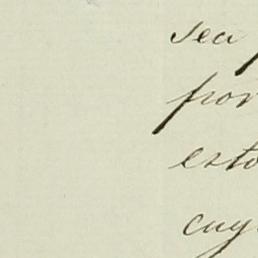 sea
por
esto
cuy